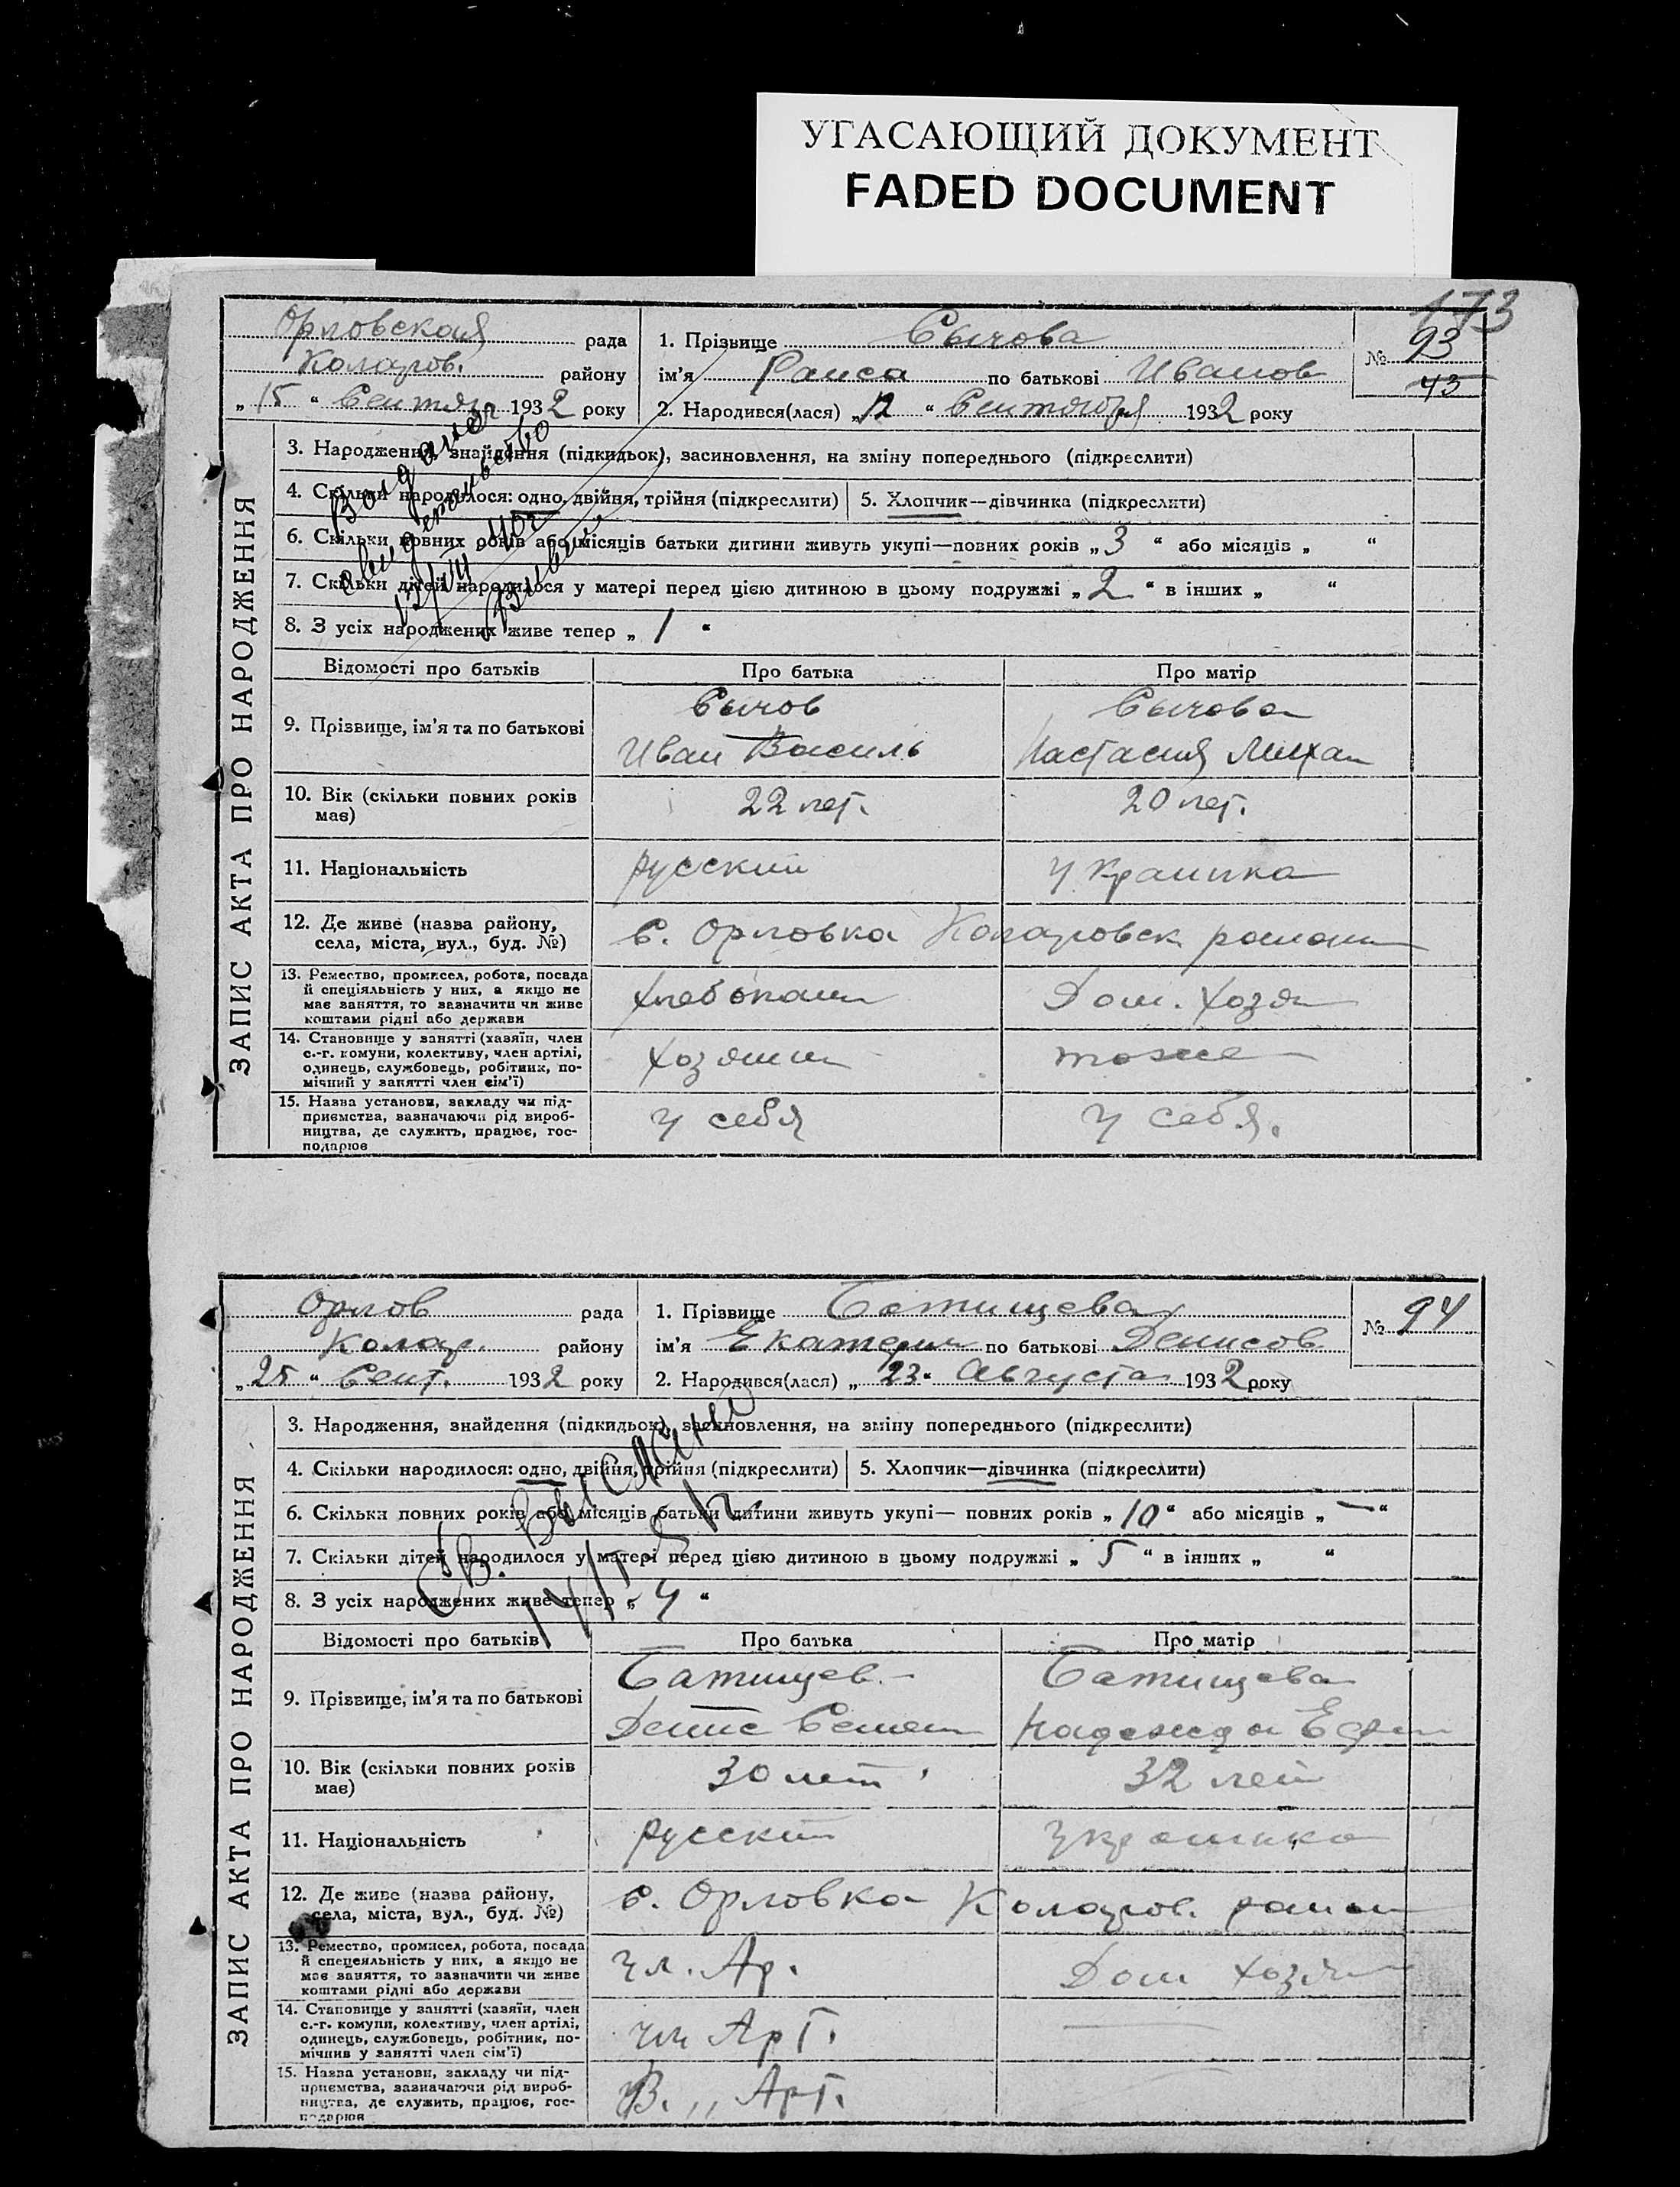 УГАСАЮЩИЙ ДОКУМЕНТ
FADED DOCUMENT
173
Орловская рада
Коларов. району
„ 15 “ Сентяб 1932 року
1. Прізвище Сычова
ім'я Раиса по батькові Иванов
2. Народився(лася) „ 12 “ Сентября 1932 року
№ 93
43
ЗАПИС АКТА ПРО НАРОДЖЕННЯ
3. Народження, знайдення (підкидьок), засиновлення, на зміну попереднього (підкреслити)
4. Скільки народилося: одно, двійня, трійня (підкреслити)
5. Хлопчик—дівчинка (підкреслити)
6. Скільки повних років або місяців батьки дитини живуть укупі—повних років „ 3 “ або місяців „ “
7. Скільки дітей народилося у матері перед цією дитиною в цьому подружжі „ 2 “ в інших „ “
8. З усіх народжених живе тепер „ 1 “
свидетельство
Відомості про батьків Про батька Про матір
9. Прізвище, ім'я та по батькові
Сычов
Иван Василь
Сычова
Настасия Миха
10. Вік (скільки повних років
має)
22 лет. 20 лет.
11. Національність русский Украинка
12. Де живе (назва району,
села, міста, вул., буд. №)
с. Орловка Коларовск район
13. Ремество, промисел, робота, посада
й спеціяльність у них, а якщо не
має заняття, то зазначити чи живе
коштами рідні або держави
Хлебопаш Дом. Хозя
14. Становище у занятті (хазяїн, член
с.-г. комуни, колективу, член артілі,
одинець, службовець, робітник, по-
мічний у занятті член сім'ї)
Хозяин тоже
15. Назва установи, закладу чи під-
приємства, зазначаючи рід вироб-
ництва, де служить, працює, гос-
подарює
У себя У себя.
Орлов рада
Колар. району
„ 25 “ Сент. 1932 року
1. Прізвище Батищева
ім'я Екатерин по батькові Денисов.
2. Народився(лася) „ 23 “ Августа 1932 року
№ 94
ЗАПИС АКТА ПРО НАРОДЖЕННЯ
3. Народження, знайдення (підкидьок), засиновлення, на зміну попереднього (підкреслити)
4. Скільки народилося: одно, двійня, трійня (підкреслити)
5. Хлопчик—дівчинка (підкреслити)
6. Скільки повних років або місяців батьки дитини живуть укупі— повних років „ 10 “ або місяців „ — “
7. Скільки дітей народилося у матері перед цією дитиною в цьому подружжі „ 5 “ в інших „ “
8. З усіх народжених живе тепер „ 4 “
Св. Выслано
Відомості про батьків Про батька Про матір
9. Прізвище, ім'я та по батькові
Батищев
Денис Семен
Батищева
Надежда Ефр
10. Вік (скільки повних років
має)
30 лет 32 лет
11. Національність русский украинка
12. Де живе (назва району,
села, міста, вул., буд. №)
с. Орловка Коларов. район
13. Ремество, промисел, робота, посада
й спецеяльність у них, а якщо не
має заняття, то зазначити чи живе
коштами рідні або держави
Чл. Ар. Дом хозяи
14. Становище у занятті (хазяїн, член
с.-г. комуни, колективу, член артілі,
одинець, службовець, робітник, по-
мічник у занятті член сім'ї)
чл Арт.
15. Назва установи, закладу чи під-
приємства, зазначаючи рід вироб-
ництва, де служить, працює, гос-
подарює
В. „ Арт.